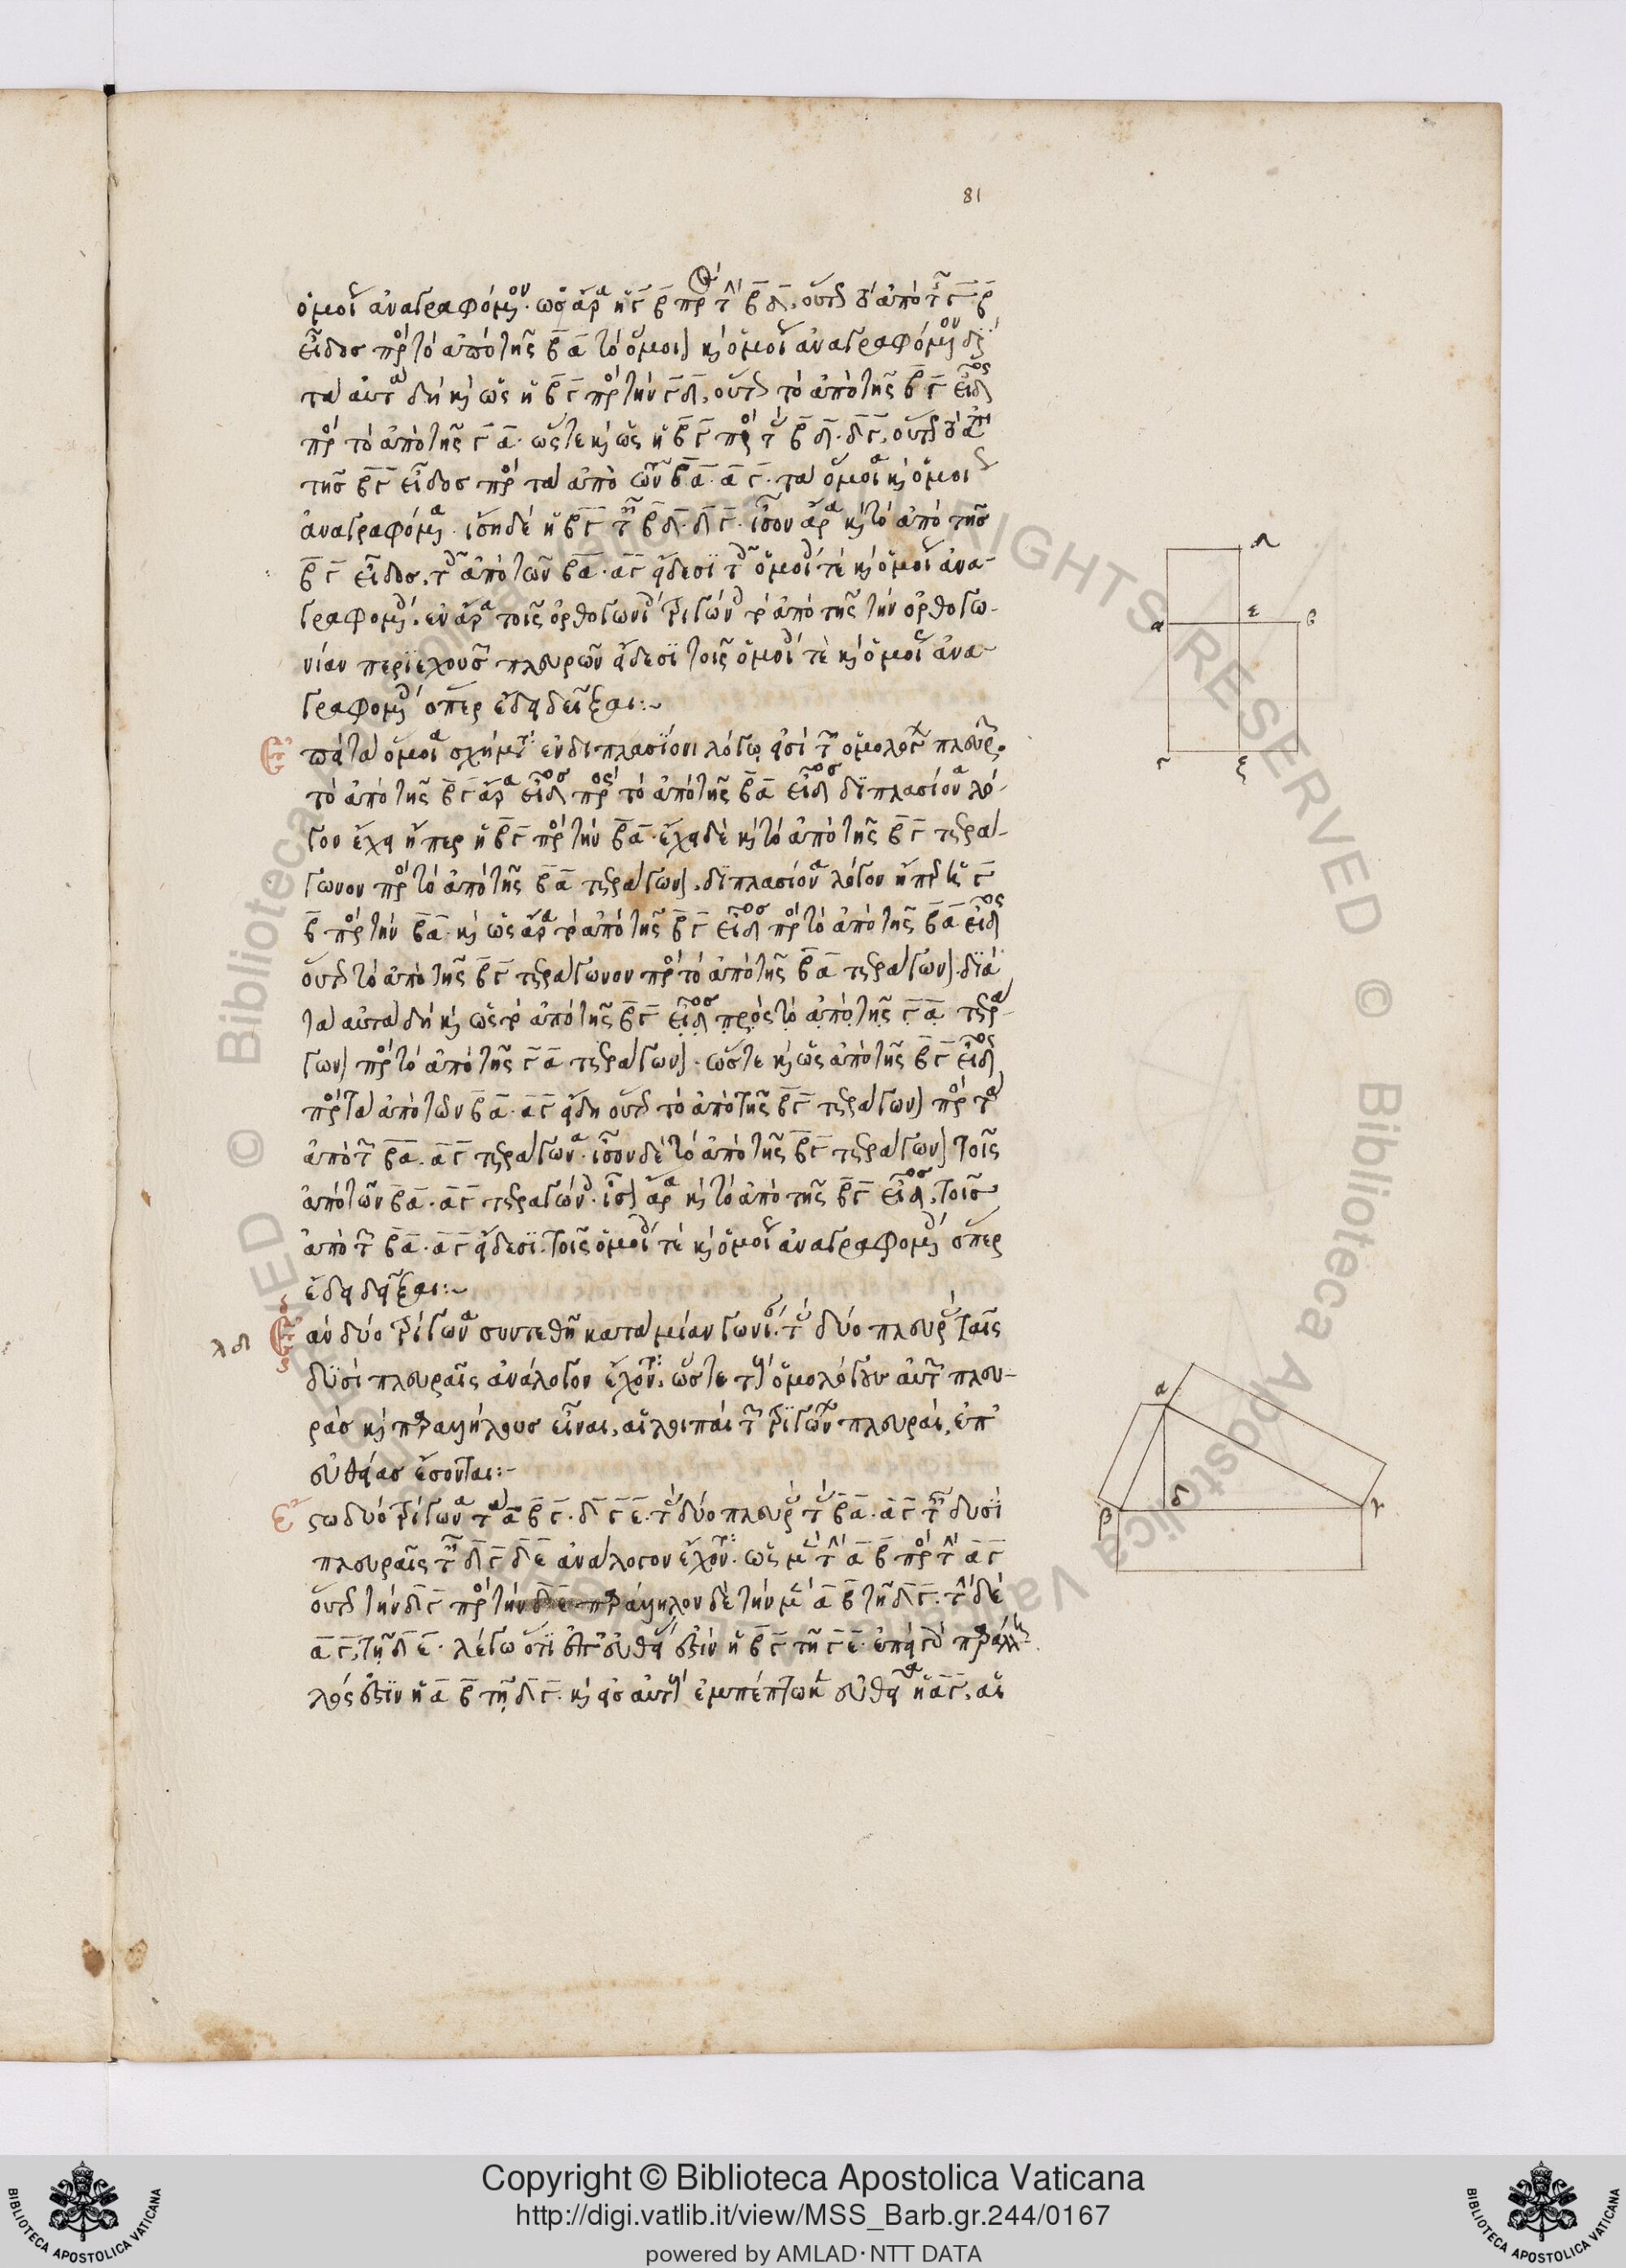 81
ὁμοί ἀναγραφόμενον. ὡς ἄρα ἡ γ β πρὸς τὴν β δ, οὕτως τὸ ἀπὸ τῆς γ β
εἶδος πρὸς τὸ ἀπὸ τῆς β α τὸ ὅμοιον καὶ ὁμοίως ἀναγραφόμενον διὰ
τὰ αὐτὰ δὴ καὶ ὡς ἡ β γ πρὸς τὴν γ δ, οὕτως τὸ ἀπὸ τῆς β γ εἶδος
πρὸς τὸ ἀπὸ τῆς γ α. ὥστε καὶ ὡς ἡ β γ πρὸς τὰς β δ. δ γ, οὕτως τὸ ἀπὸ
τῆς β γ εἶδος πρὸς τὰ ἀπὸ τῶν β α. α γ. τὰ ὅμοια καὶ ὁμοίως
ἀναγραφόμενα. ἴση δὲ ἡ β γ ταῖς β δ. δ γ. ἴσον ἄρα καὶ τὸ ἀπὸ τῆς
β γ εἶδος, τοῖς ἀπὸ τῶν β α. α γ εἴδεσι τοῖς ὁμοίοις τε καὶ ὁμοίως ἀνα-
γραφομένοις. ἐν ἄρα τοῖς ὀρθογωνίοις τριγώνοις τὸ ἀπὸ τῆς τὴν ὀρθογω-
νίαν περιεχουσῶν πλευρῶν εἴδεσι τοῖς ὁμοίοις τε καὶ ὁμοίως ἀνα-
γραφομένοις ὅπερ ἔδει δεῖξαι:~
Ἐπεὶ τὰ ὅμοια σχήματα ἐν διπλασίονι λόγῳ εἰσὶ τῶν ὁμολόγων πλευρῶν.
τὸ ἀπὸ τῆς β γ ἄρα εἶδος πρὸς τὸ ἀπὸ τῆς β α εἶδος διπλασίονα λό-
γον ἔχει ἤπερ ἡ β γ πρὸς τὴν β α. ἔχει δὲ καὶ τὸ ἀπὸ τῆς β γ τετρά-
γωνον πρὸς τὸ ἀπὸ τῆς β α τετράγωνον. διπλασίονα λόγον ἤπερ ἡ γ
β πρὸς τὴν β α. καὶ ὡς ἄρα τὸ ἀπὸ τῆς β γ εἶδος πρὸς τὸ ἀπὸ τῆς β α εἶδος
οὕτως τὸ ἀπὸ τῆς β γ τετράγωνον πρὸς τὸ ἀπὸ τῆς β α τετράγωνον. διὰ
τὰ αὐτὰ δὴ καὶ ὡς τὸ ἀπὸ τῆς β γ εἶδος πρὸς τὸ ἀπὸ τῆς γ α τετρά-
γωνον πρὸς τὸ ἀπὸ τῆς γ α τετράγωνον. ὥστε καὶ ὡς ἀπὸ τῆς β γ εἶδος
πρὸς τὰ ἀπὸ τῶν β α. α γ εἴδη οὕτως τὸ ἀπὸ τῆς β γ τετράγωνον πρὸς τὰ
ἀπὸ τῶν β α. α γ τετράγωνα. ἴσον δὲ τὸ ἀπὸ τῆς β γ τετράγωνον τοῖς
ἀπὸ τῶν β α. α γ τετραγώνοις. ἴσον ἄρα καὶ τὸ ἀπὸ τῆς β γ εἶδος, τοῖς
ἀπὸ τῶν β α. α γ εἴδεσι. τοῖς ὁμοίοις τε καὶ ὁμοίως ἀναγραφομένοις ὅπερ
ἔδει δεῖξαι:~
λδ Ἐὰν δύο τρίγωνα συντεθῇ κατὰ μίαν γωνίαν. τὰς δύο πλευρὰς ταῖς
δυσὶ πλευραῖς ἀνάλογον ἔχοντα. ὥστε τὰς ὁμολόγους αὐτῶν πλευ-
ρὰς καὶ παραλλήλους εἶναι, αἱ λοιπαὶ τῶν τριγώνων πλευραί, ἐπ'
εὐθείας ἔσονται:-
Ἔστω δύο τρίγωνα τὰ α β γ. δ γ ε. τὰς δύο πλευρὰς τὰς β α. α γ ταῖς δυσὶ
πλευραῖς ταῖς δ γ δ ε ἀνάλογον ἔχοντα. ὡς μὲν τὴν α β πρὸς τὴν α γ
οὕτως τὴν δ γ πρὸς τὴν δ ε παράλληλον δὲ τὴν μὲν α β τῇ δ γ. τὴν δὲ
α γ, τῇ δ ε. λέγω ὅτι ἐπ' εὐθείας ἐστὶν ἡ β γ τῇ γ ε. ἐπεὶ γὰρ παράλλη-
λός ἐστιν ἡ α β τῇ δ γ. καὶ εἰς αὐτὰς ἐμπέπτωκεν εὐθεῖα ἡ α γ, αἱ
δ
α ε β
γ ζ
α
β δ γ
Copyright © Biblioteca Apostolica Vaticana
http://digi.vatlib.it/view/MSS_Barb.gr.244/0167
powered by AMLAD·NTT DATA
BIBLIOTECA APOSTOLICA VATICANA
BIBLIOTECA APOSTOLICA VATICANA